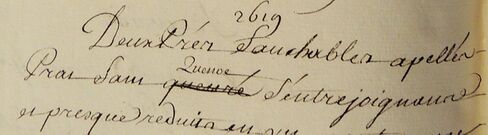 2619
Deux Prés Fauchables apellés
Pras Sam Quenoe queuré S'entrejoignans
et presque reduits en un